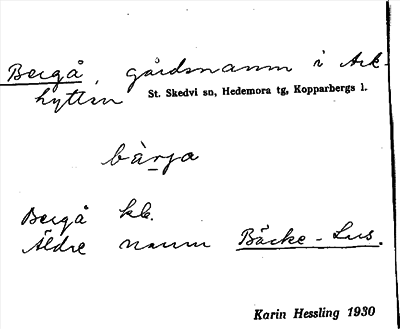 Bergå, gårdsnamn i Ark-
hyttan St. Skedvi sn, Hedemora tg, Kopparbergs l.
bàrja
Bergå kb.
Äldre namn Bäcke-Lus.
Karin Hessling 1930